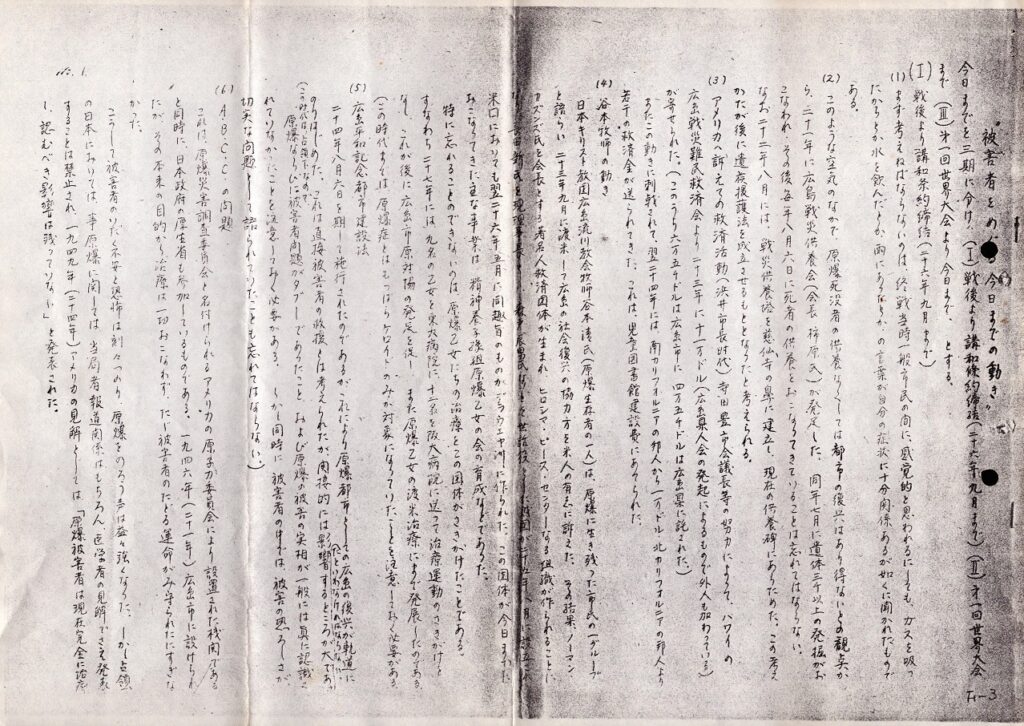 "被害者をめぐる今日までの動き"
今日までを三期に分け、(Ⅰ)戦後より講和條約締結(二十六年九月まで)(Ⅱ)才一回世界大会
まで(Ⅲ)才一回世界大会より今日まで、とする。
(Ⅰ) 戦後より講和条約締結(二十六年九月まで)
(1) まず考えねばならないのは、終戦当時一般市民の間に、感覚的と思われるにしても、ガスを吸っ
たからとか水を飲んだとか、雨にあたったとか、の言葉が自分の症状に十分関係あるが如くに聞かれたもので
ある。
(2) このような空気のなかで、原爆死没者の供養なくしては都市の復興はあり得ないとの観点か
ら、二十一年に広島戦災供養会(会長 柿原氏)が発足した。同年七月に遺体三千以上の発掘がお
こなわれ、その後毎年八月六日に死者の供養をおこなってきていることは忘れてはならない。
なお二十二年八月には、戦災供養塔を慈仙寺の鼻に建立し、現在の供養碑にあらためた。この考え
かたが後に遺族援護法を成立させるもととなったと考える。
(3) アメリカへ訴えての救済活動(浜井市長時代)寺田豊市会議長等の努力によって、ハワイの
広島戦災難民救済会より二十三年に十一万ドル(広島県人会の発起によるもので外人も加わっている)
が寄せられた。(このうち六万五千ドルは広島市に、四万五千ドルは広島県に託された。)
またこの動きに刺戟されて、翌二十四年には、南カリフォルニアの邦人から一万ドル、北カリフォルニアの邦人より
若干の救済金が送られてきた。これは、児童図書館建設費にあてられた。
(4) 谷本牧師の動き
日本キリスト教団広島流川教会牧師谷本清氏(原爆生存者の一人)は、原爆に生き残った市民の一グループ
と語らい、二十三年九月に渡米して広島の社会復興の協力方を米人の有志に訴えた。その結果ノーマン
カズンズ氏を会長とする著名人救済団体が生まれ、ヒロシマ・ピース・センターなる組織が作られることに
米国においても翌二十六年五月に同趣旨のものがニューヨーク州に作られた。この団体が今日まで
おこなってきた主な事業は、精神養子縁組原爆乙女の会の育成などであった。
特に忘れることのできないのは、原爆乙女たちの治療とこの団体がさきがけたことである。
すなわち二十七年には、九名の乙女を東大病院に、十二名を阪大病院に送って治療運動のさきがけと
なし、これが後に広島市原対協の発足を促し、また原爆乙女の渡米治療にまで発展したのである。
(この時代までは、原爆症とはもっぱらケロイドのみが対象になっていたことを注意しておく必要がある
(5) 広島平和記念都市建設法
二十四年八月六日を期し施行されたのであるが、これにより原爆都市としての広島の復興が軌道に
のりはじめた。これは直接被害者の救援とは考えられたが、間接的には影響するところが大であ
(この時代は占領下なので、
原爆などに被害者問題がタブーであったこと、および原爆の被害の実相が一般には真に認識さ
れていなかったことを注意しておく必要がある。しかし同時に被害者の中では、被害の恐ろしさが
切実な問題として語られていたことも忘れてはならない。)
(6) A・B・C・Cの問題
これは、原爆災害調査委員会と名付けられるアメリカの原子力委員会により設置された機関である
と同時に、日本政府の厚生省も参加しているものである。一九四六年(二十一年)広島市に設けられ
たが、その本来の目的から治療は一切おこなわず、ただ被害者のたどる運命がみまもられたにすぎな
かった。
こうして被害者のいだく不安と恐怖は刻々つのり、原爆をのろう声は益々強くなった。しかし占領
の日本においては、事原爆に関しては、当局者報道関係はもちろん、医学者の見解でさえ発表
することは禁止され、一九四九年(二十四年)アメリカの見解としては「原爆被害者は現在完全に治癒
し、認むべき影響は残っていない」と発表された。
No. 1.
F1-3